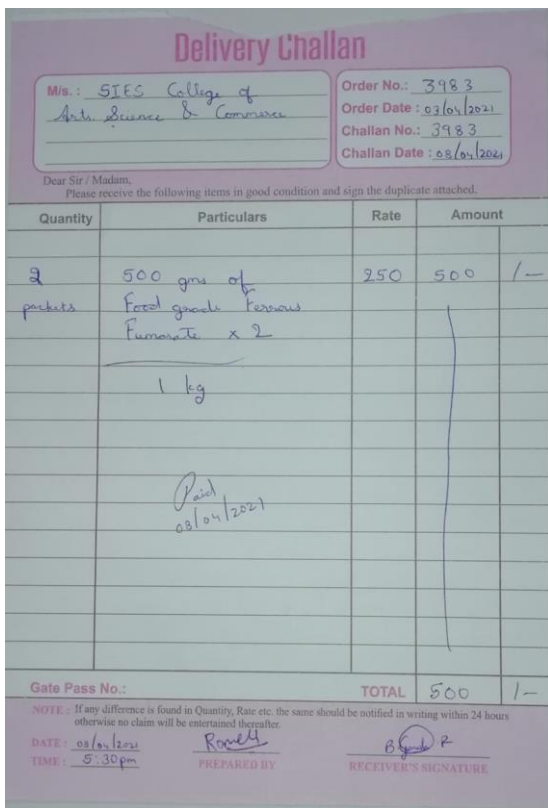 Delivery Challan
M/s. : SIES College of
Arts Science & Commerce
Order No.: 3983
Order Date : 03/04/2021
Challan No.: 3983
Challan Date : 08/04/2021
Dear Sir / Madam,
Please receive the following items in good condition and sign the duplicate attached.
Quantity Particulars Rate Amount
2 500 gms of 250 500 /-
packets Food grade Ferrous
Fumarate x 2
1 kg
Paid
08/04/2021
Gate Pass No.: TOTAL 500 /-
NOTE : If any difference is found in Quantity, Rate etc. the same should be notified in writing within 24 hours
otherwise no claim will be entertained thereafter.
DATE : 08/04/2021
TIME : 5:30pm PREPARED BY RECEIVER'S SIGNATURE